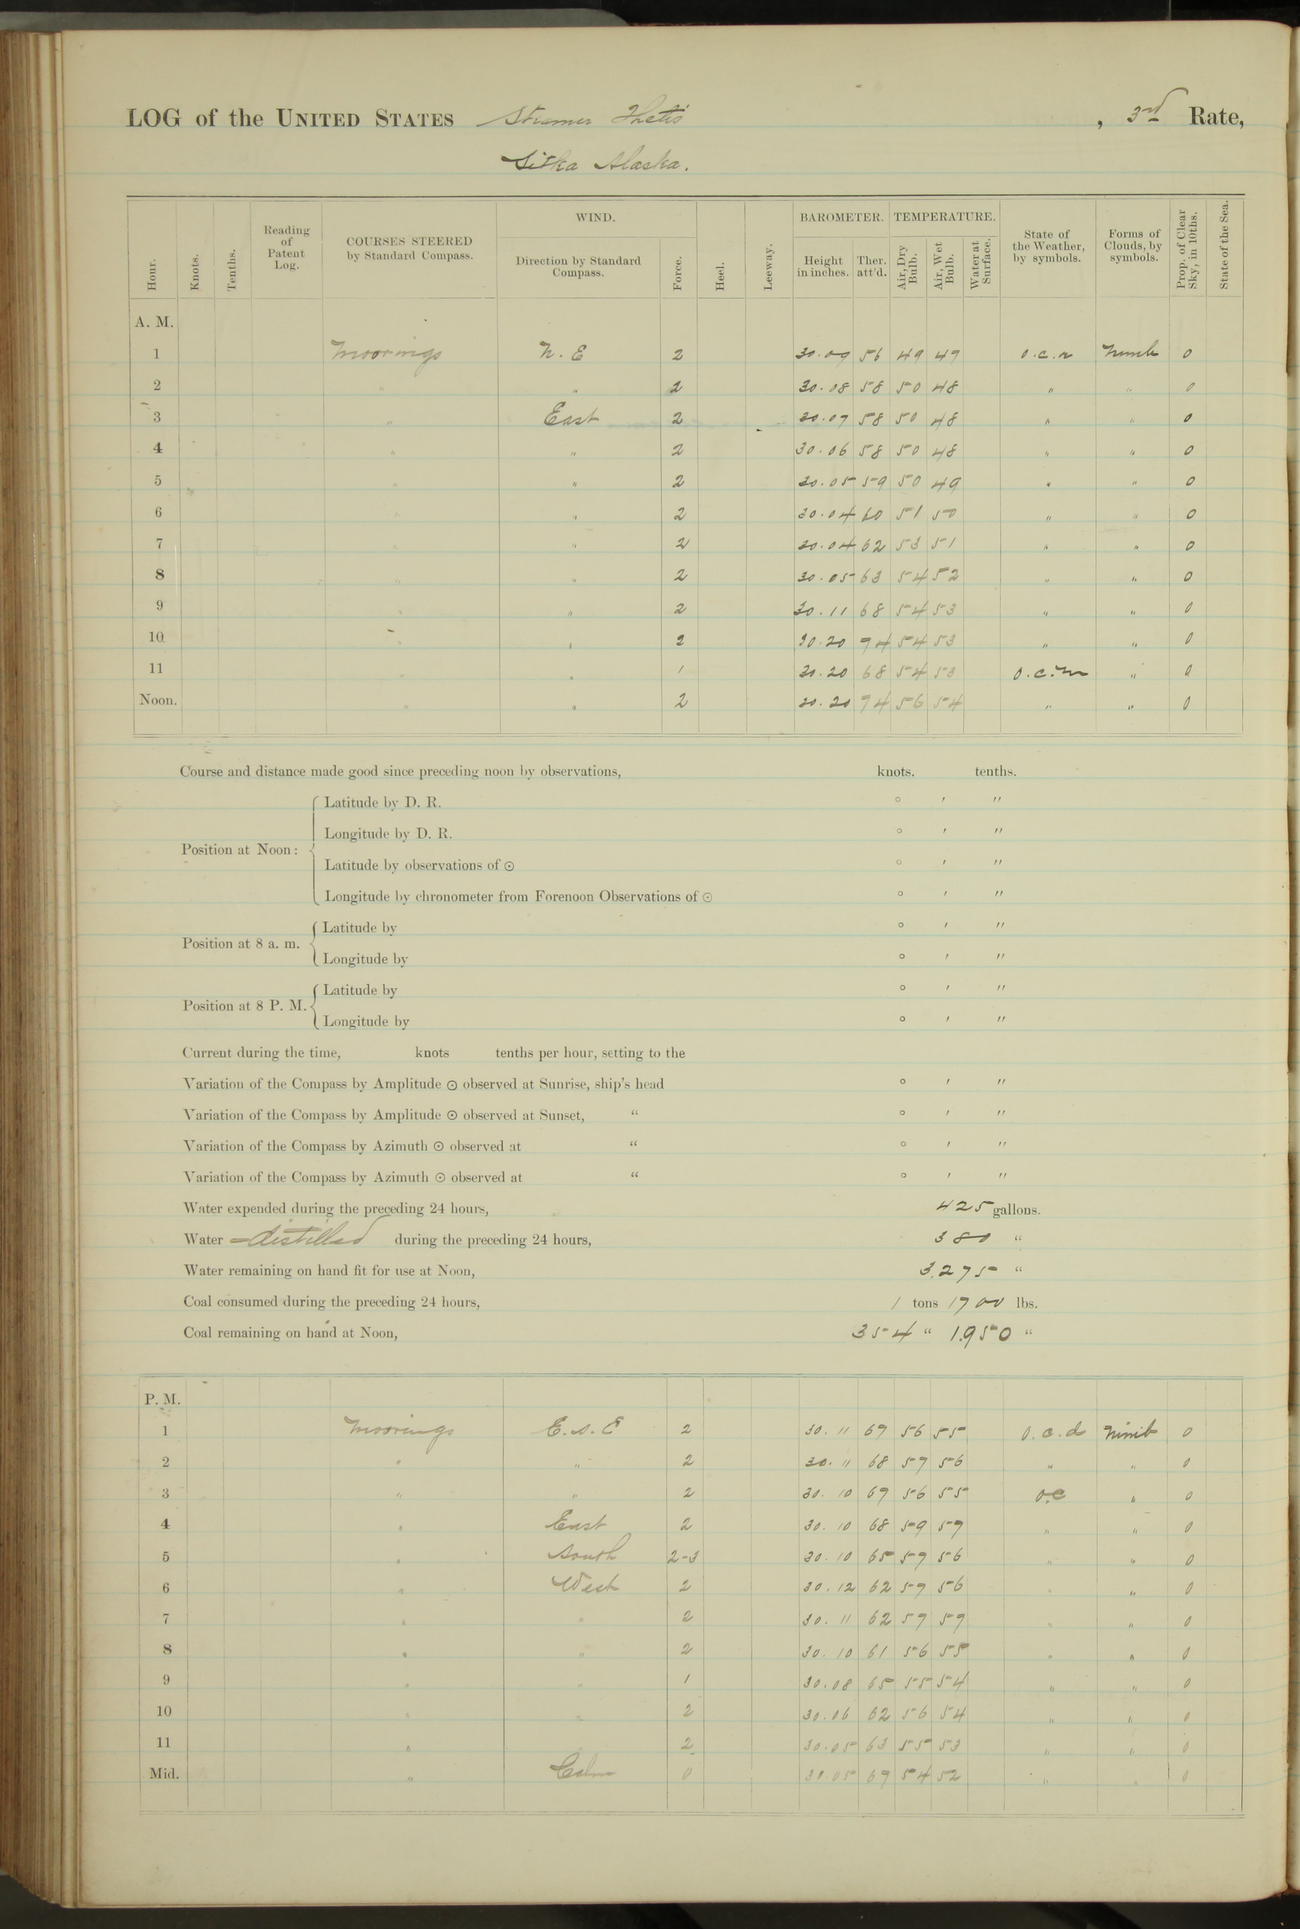 LOG of the UNITED STATES Steamer Thetis , 3rd Rate,
Sitka Alaska.
Hour. Knots. Tenths. Reading of Patent Log. COURSES STEERED by Standard Compass. WIND. Direction by Standard Compass. Force. Heel. Leeway. BAROMETER. Height in inches. Ther. att'd. TEMPERATURE. Air, Dry Bulb. Air, Wet Bulb. Water at Surface. State of the Weather, by symbols. Forms of Clouds, by symbols. Prop. of Clear Sky, in 10ths. State of the Sea.
A. M.
1 Moorings N. E 2 30.09 56 49 49 o.c.r Nimb 0
2 " " 2 30.08 58 50 48 " " 0
3 " East 2 30.07 58 50 48 " " 0
4 " " 2 30.06 58 50 48 " " 0
5 " " 2 30.05 59 50 49 " " 0
6 " " 2 30.04 60 51 50 " " 0
7 " " 2 30.04 62 53 51 " " 0
8 " " 2 30.05 63 54 52 " " 0
9 " " 2 30.11 68 54 53 " " 0
10 " " 2 30.20 74 54 53 " " 0
11 " " 1 30.20 68 54 53 o.c.m " 0
Noon. " " 2 30.20 74 56 54 " " 0
Course and distance made good since preceding noon by observations, knots. tenths.
Position at Noon: Latitude by D. R. ° ′ ″
Longitude by D. R. ° ′ ″
Latitude by observations of ⊙ ° ′ ″
Longitude by chronometer from Forenoon Observations of ⊙ ° ′ ″
Position at 8 a. m. Latitude by ° ′ ″
Longitude by ° ′ ″
Position at 8 P. M. Latitude by ° ′ ″
Longitude by ° ′ ″
Current during the time, knots tenths per hour, setting to the
Variation of the Compass by Amplitude ⊙ observed at Sunrise, ship's head ° ′ ″
Variation of the Compass by Amplitude ⊙ observed at Sunset, “ ° ′ ″
Variation of the Compass by Azimuth ⊙ observed at “ ° ′ ″
Variation of the Compass by Azimuth ⊙ observed at “ ° ′ ″
Water expended during the preceding 24 hours, 425 gallons.
Water distilled during the preceding 24 hours, 380 “
Water remaining on hand fit for use at Noon, 3,275 “
Coal consumed during the preceding 24 hours, 1 tons 1700 lbs.
Coal remaining on hand at Noon, 354 “ 1950 “
P. M.
1 Moorings E.S.E 2 30.11 67 56 55 o.c.d Nimb 0
2 " " 2 30.11 68 57 56 " " 0
3 " " 2 30.10 67 56 55 o.c " 0
4 " East 2 30.10 68 59 57 " " 0
5 " South 2-3 30.10 65 57 56 " " 0
6 " West 2 30.12 62 57 56 " " 0
7 " " 2 30.11 62 57 57 " " 0
8 " " 2 30.10 61 56 55 " " 0
9 " " 1 30.08 65 55 54 " " 0
10 " " 2 30.06 62 56 54 " " 0
11 " 2 30.05 63 55 53 " " 0
Mid. " Calm 0 30.05 67 54 52 " " 0